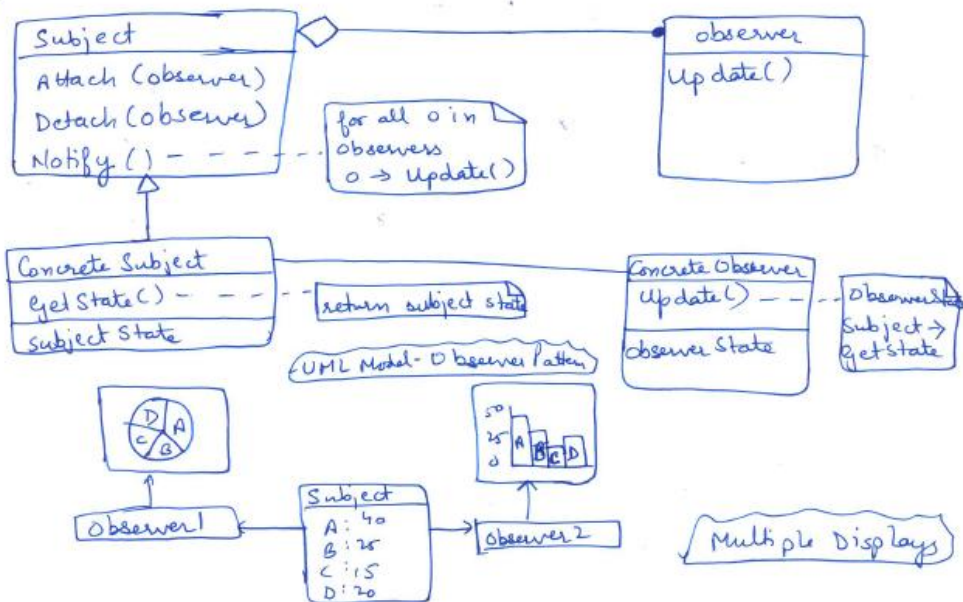 Subject
Attach (observer)
Detach (observer)
Notify ()
for all o in
observers
o → Update()
observer
Update()
Concrete Subject
getState()
subject State
return subject state
Concrete Observer
Update()
observer State
Subject →
getState
UML Model - Observer Pattern
D A
C B
50
25
0
A B C D
Observer 1
Subject
A : 40
B : 25
C : 15
D : 20
Observer 2
Multiple Displays